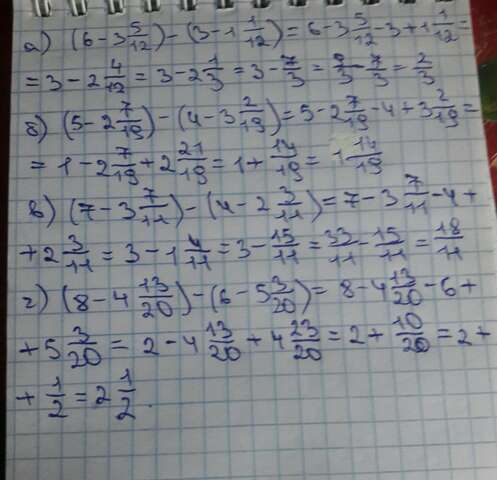 а) (6-3 5/12)-(3-1 1/12)=6-3 5/12-3+1 1/12=
=3-2 4/12=3-2 1/3=3-7/3=9/3-7/3=2/3
б) (5-2 7/19)-(4-3 2/19)=5-2 7/19-4+3 2/19=
=1-2 7/19+2 21/19=1+14/19=1 14/19
в) (7-3 7/11)-(4-2 3/11)=7-3 7/11-4+
+2 3/11=3-1 4/11=3-15/11=33/11-15/11=18/11
г) (8-4 13/20)-(6-5 3/20)=8-4 13/20-6+
+5 3/20=2-4 13/20+4 23/20=2+10/20=2+
+1/2=2 1/2.